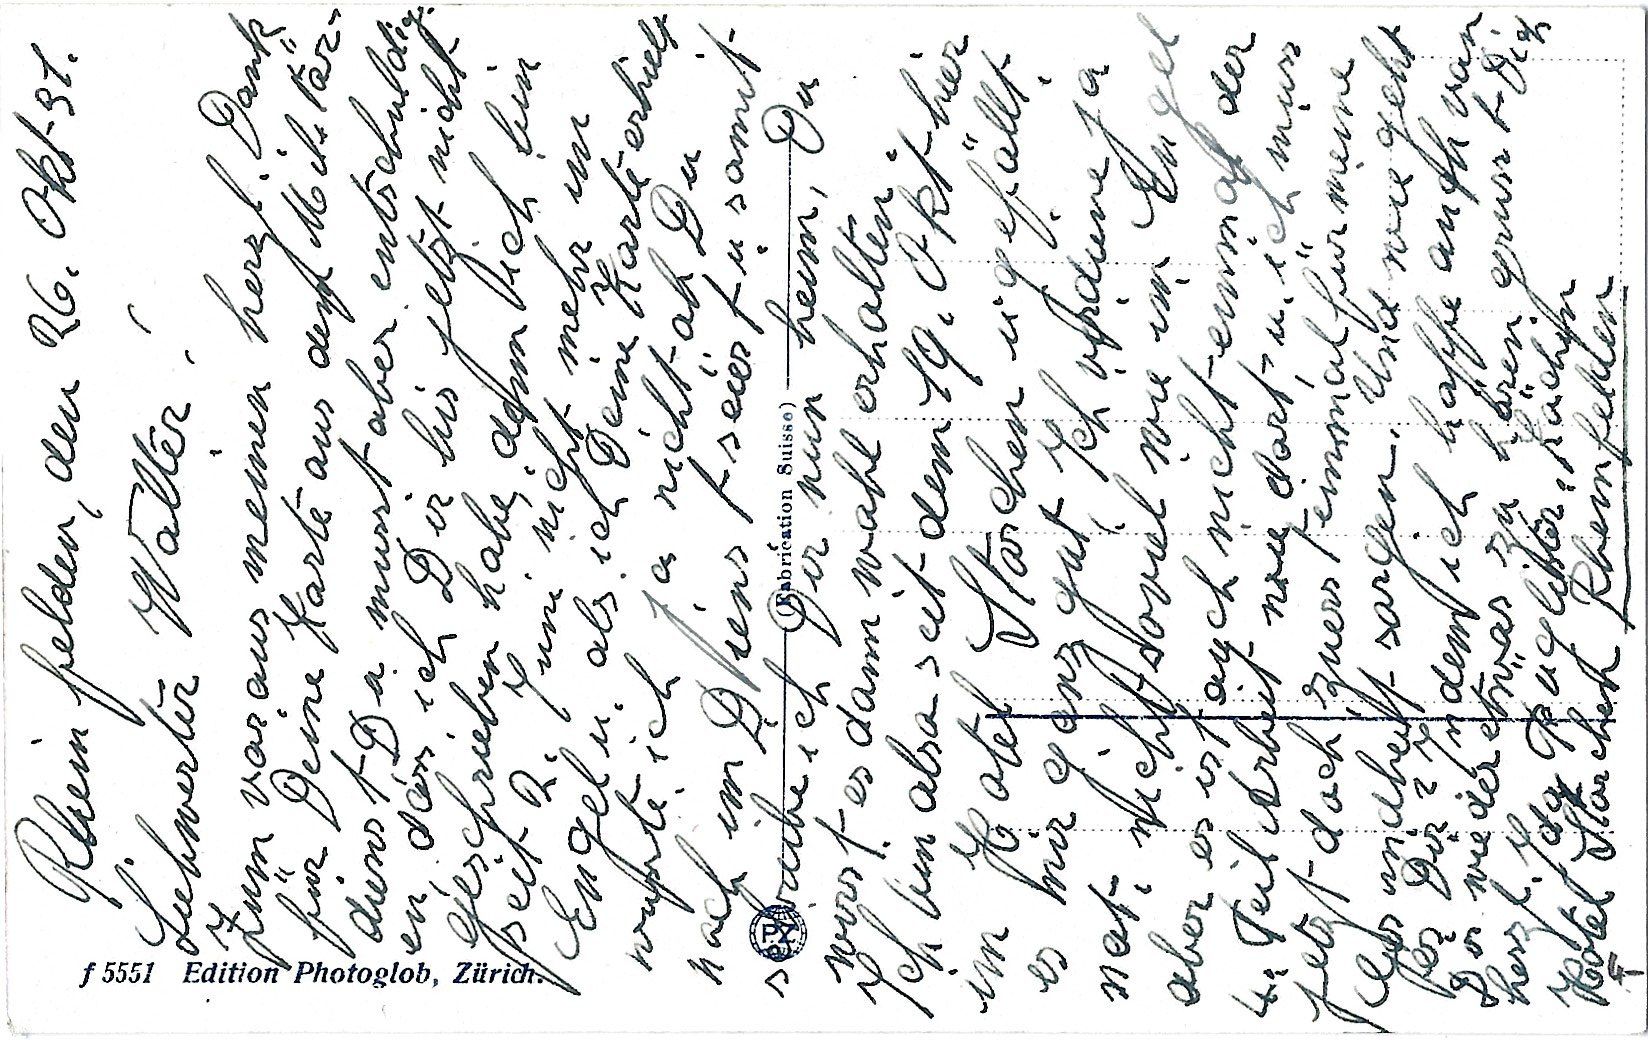 Rheinfelden, den 26. Okt. 31.
Liebwerter Walter!
Zum voraus meinen herzl. Dank
für Deine Karte aus dem Militär-
dienst Du musst aber entschuldig-
en, dass ich Dir bis jetzt nicht
geschrieben habe, denn ich bin
seit 2. Juni nicht mehr im
Engel u. als ich Deine Karte erhielt
wusste ich ja nicht ob Du
noch im Diens t seiest u. somit
schreibe ich Dir nun heim, Du
wirst es dann wohl erhalten.
Ich bin also seit dem 19. Okt. hier
im Hotel Storchen u. gefällt
es mir ganz gut. Ich verdiene ja
net. nicht soviel wie im Engel
aber es ist auch nicht einmal der
4. Teil Arbeit wie dort, u. ich muss
jetzt doch zuerst einmal für meine
Gesundheit sorgen. Und wie geht
es Dir? Indem ich hoffe auch von
Dir wieder etwas zu hören grüsst Dich
herzl. Ida
Hotel Storchen Rheinfelden
f 5551 Edition Photoglob, Zürich.
(Fabrication Suisse)